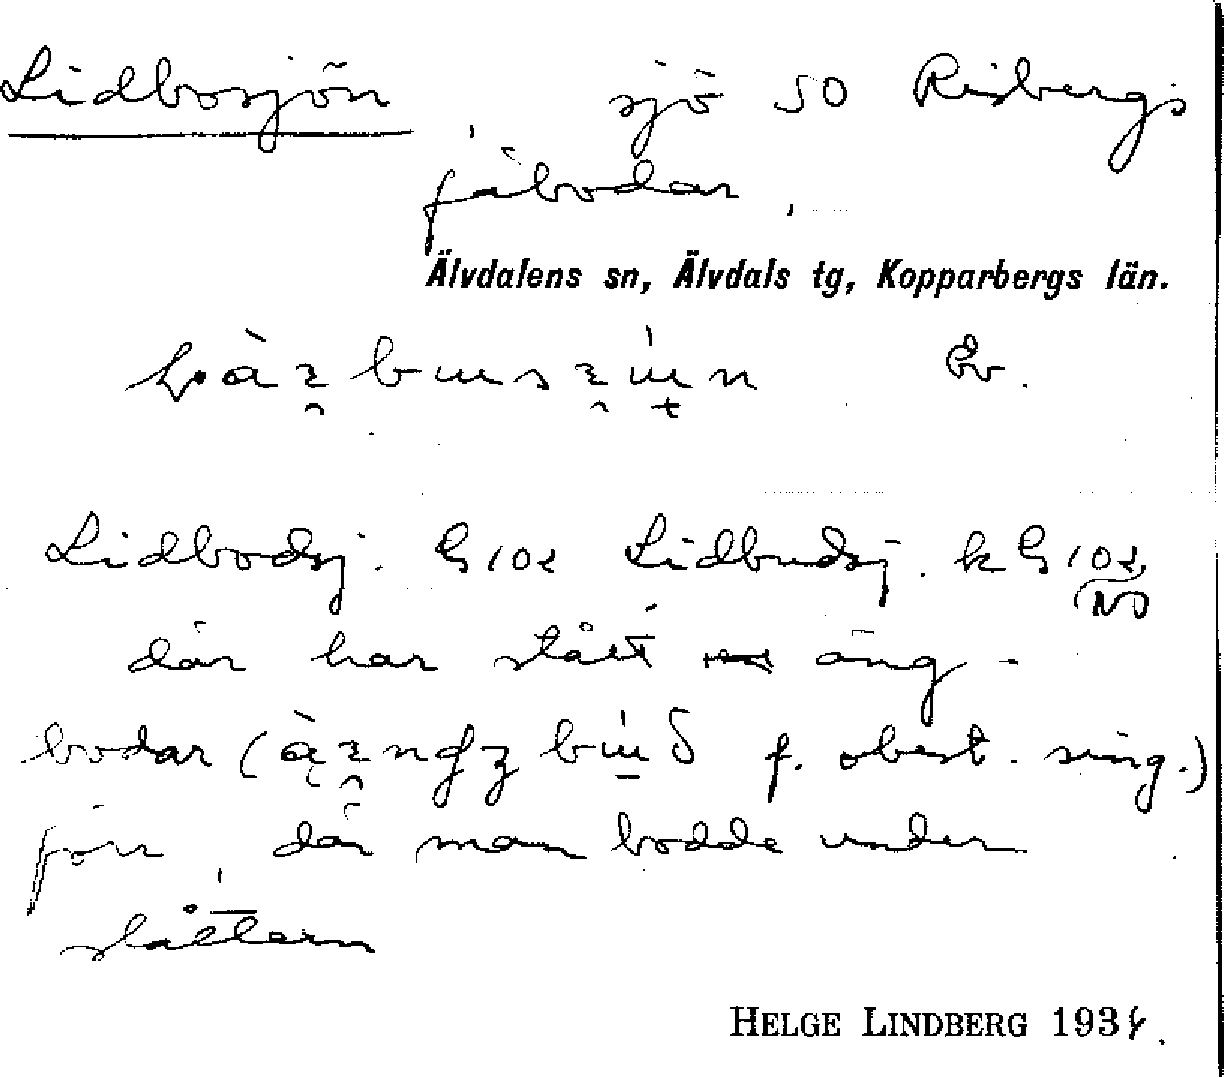 Lidbosjön, sjö SO Risbergs
fäbodar,
Älvdalens sn, Älvdals tg, Kopparbergs län.
Ev.
Lidbodsj. G 102 Lidbudsj. k G 102
NO
där har stått äng-
bodar ( f. obest. sing.)
förr, där man bodde under
slåttern
HELGE LINDBERG 193